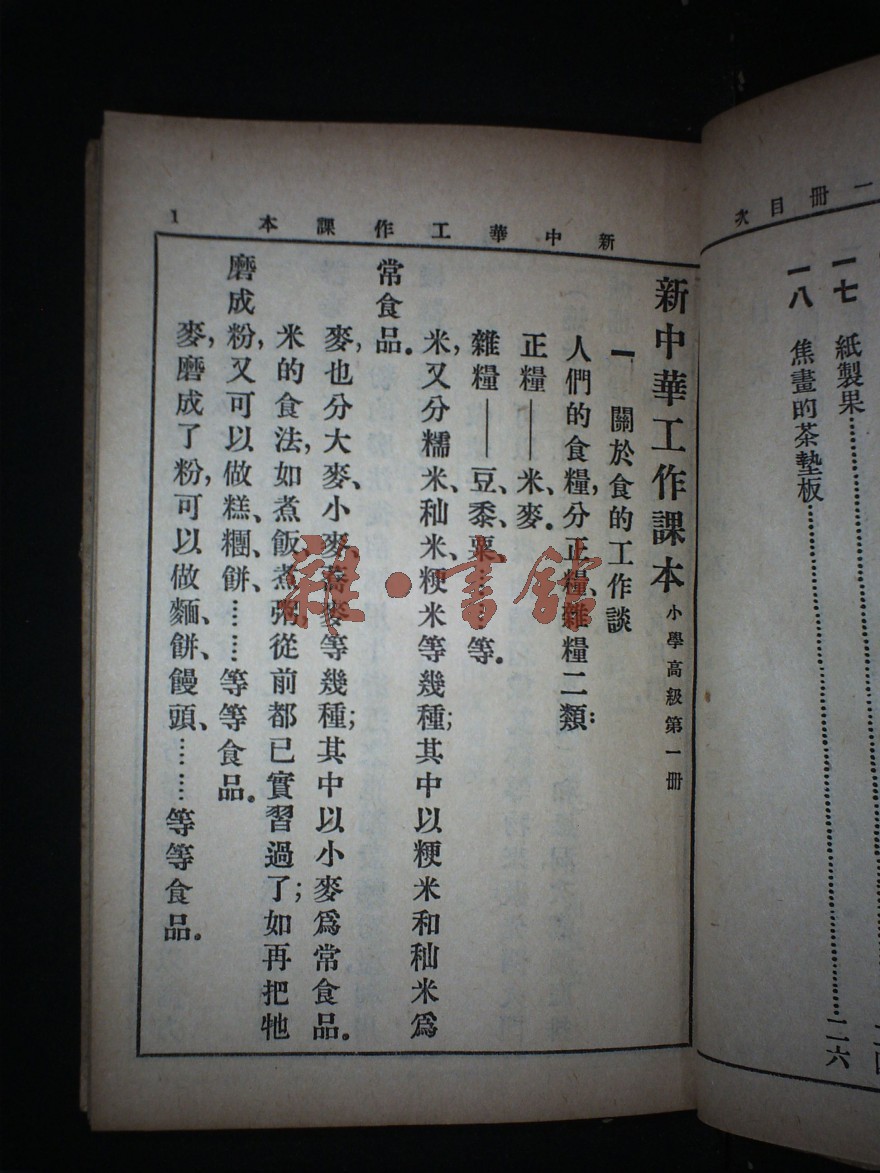 一冊目次
一七　紙製果……………………
一八　焦畫的茶墊板……………………二六
新中華工作課本
1
新中華工作課本　小學高級第一冊
一　關於食的工作談
人們的食糧，分正糧、雜糧二類：
正糧——米、麥。
雜糧——豆、黍、粟……等。
米，又分糯米、秈米、粳米等幾種；其中以粳米和秈米爲
常食品。
麥，也分大麥、小麥、蕎麥等幾種；其中以小麥爲常食品。
米的食法，如煮飯、煮粥，從前都已實習過了；如再把牠
磨成粉，又可以做糕、糰、餅、……等等食品。
麥，磨成了粉，可以做麵、餅、饅頭、……等等食品。
雜·書館